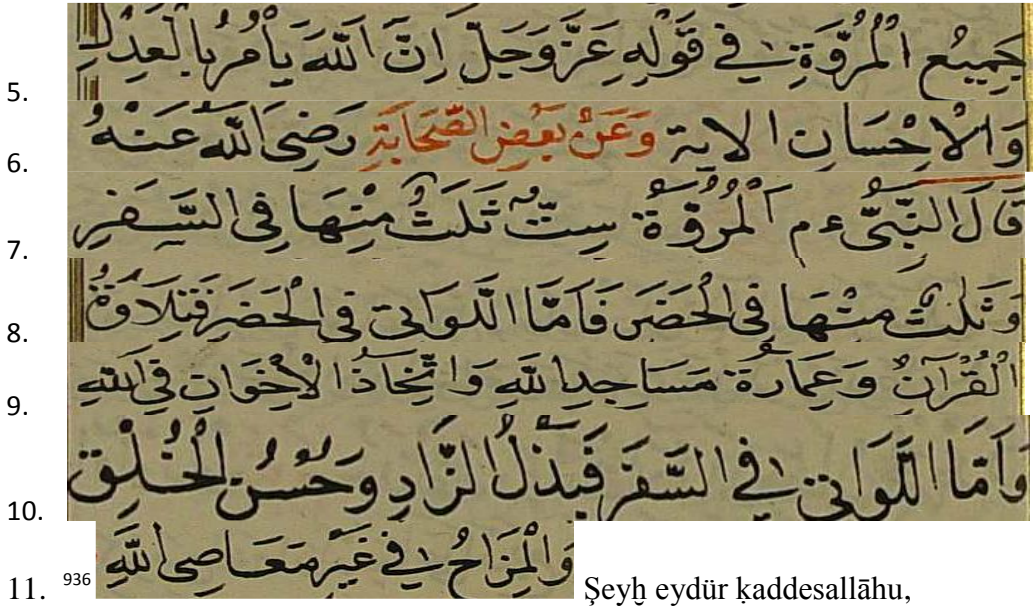 5. جَمِيعُ الْمُرُوَّةِ فِي قَوْلِهِ عَزَّوَجَلَّ اِنَّ اللّٰهَ يَأْمُرُ بِالْعَدْلِ
6. وَالْاِحْسَانِ الاية وَعَنْ بَعْضِ الصَّحَابَةِ رَضِىَ اللّٰهُ عَنْهُ
7. قَالَ النَّبِّىُّ ءم اَلْمُرُوَّةُ سِتٌّ ثَلٰثٌ مِنْهَا فِى السَّفَرِ
8. وَثَلٰثٌ مِنْهَا فِى الْحَضَرِ فَاَمَّا اللَّوَاتِى فِى الْحَضَرِ فَتِلَاوَةُ
9. الْقُرْآنِ وَعِمَارَةُ مَسَاجِدِ اللّٰهِ وَاتِّخَاذُ الْاِخْوَانِ فِى اللّٰهِ
10. وَاَمَّا اللَّوَاتِى فِى السَّفَرِ فَبَذْلُ الزَّادِ وَحُسْنُ الْخُلْقِ
11. 936 وَالْمِزَاحُ فِى غَيْرِ مَعَاصِى اللّٰهِ Şeyḫ eydür ḳaddesallāhu,